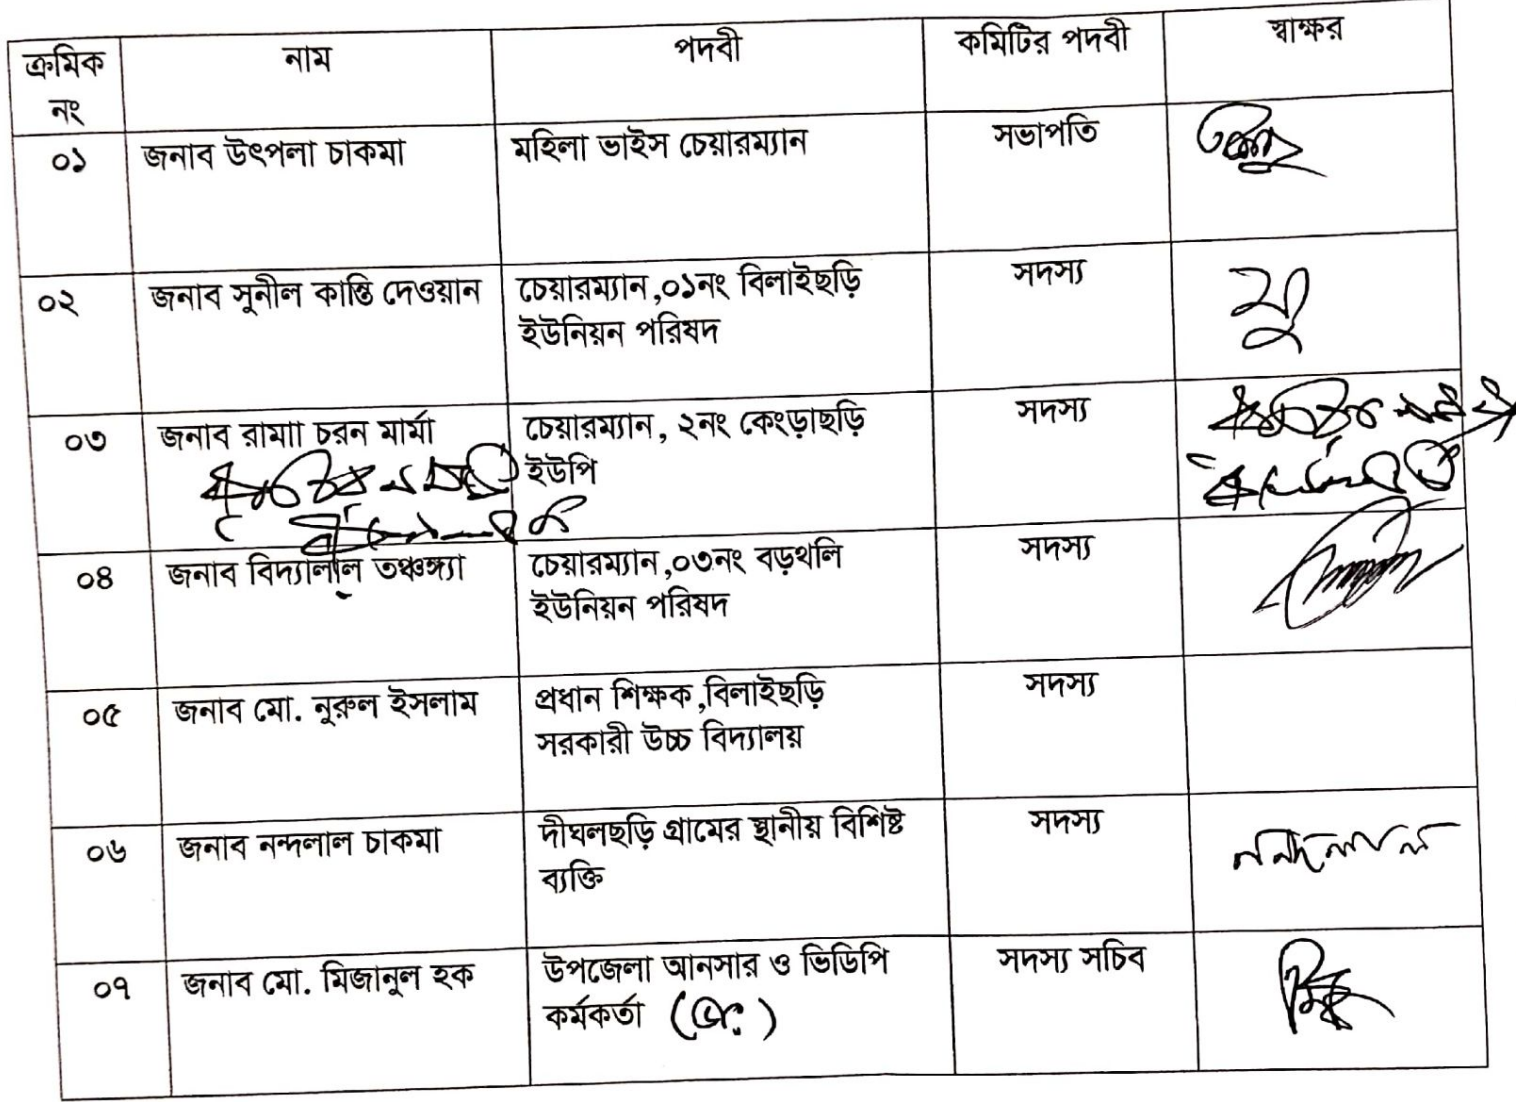 ক্রমিক নং	নাম	পদবী	কমিটির পদবী	স্বাক্ষর
০১	জনাব উৎপলা চাকমা	মহিলা ভাইস চেয়ারম্যান	সভাপতি
০২	জনাব সুনীল কান্তি দেওয়ান	চেয়ারম্যান,০১নং বিলাইছড়ি	সদস্য
ইউনিয়ন পরিষদ
০৩	জনাব রামাা চরন মার্মা	চেয়ারম্যান, ২নং কেংড়াছড়ি	সদস্য
ইউপি
০৪	জনাব বিদ্যালাল তঞ্চঙ্গ্যা	চেয়ারম্যান,০৩নং বড়থলি	সদস্য
ইউনিয়ন পরিষদ
০৫	জনাব মো. নুরুল ইসলাম	প্রধান শিক্ষক,বিলাইছড়ি	সদস্য
সরকারী উচ্চ বিদ্যালয়
০৬	জনাব নন্দলাল চাকমা	দীঘলছড়ি গ্রামের স্থানীয় বিশিষ্ট	সদস্য	নন্দলাল
ব্যক্তি
০৭	জনাব মো. মিজানুল হক	উপজেলা আনসার ও ভিডিপি	সদস্য সচিব
কর্মকর্তা